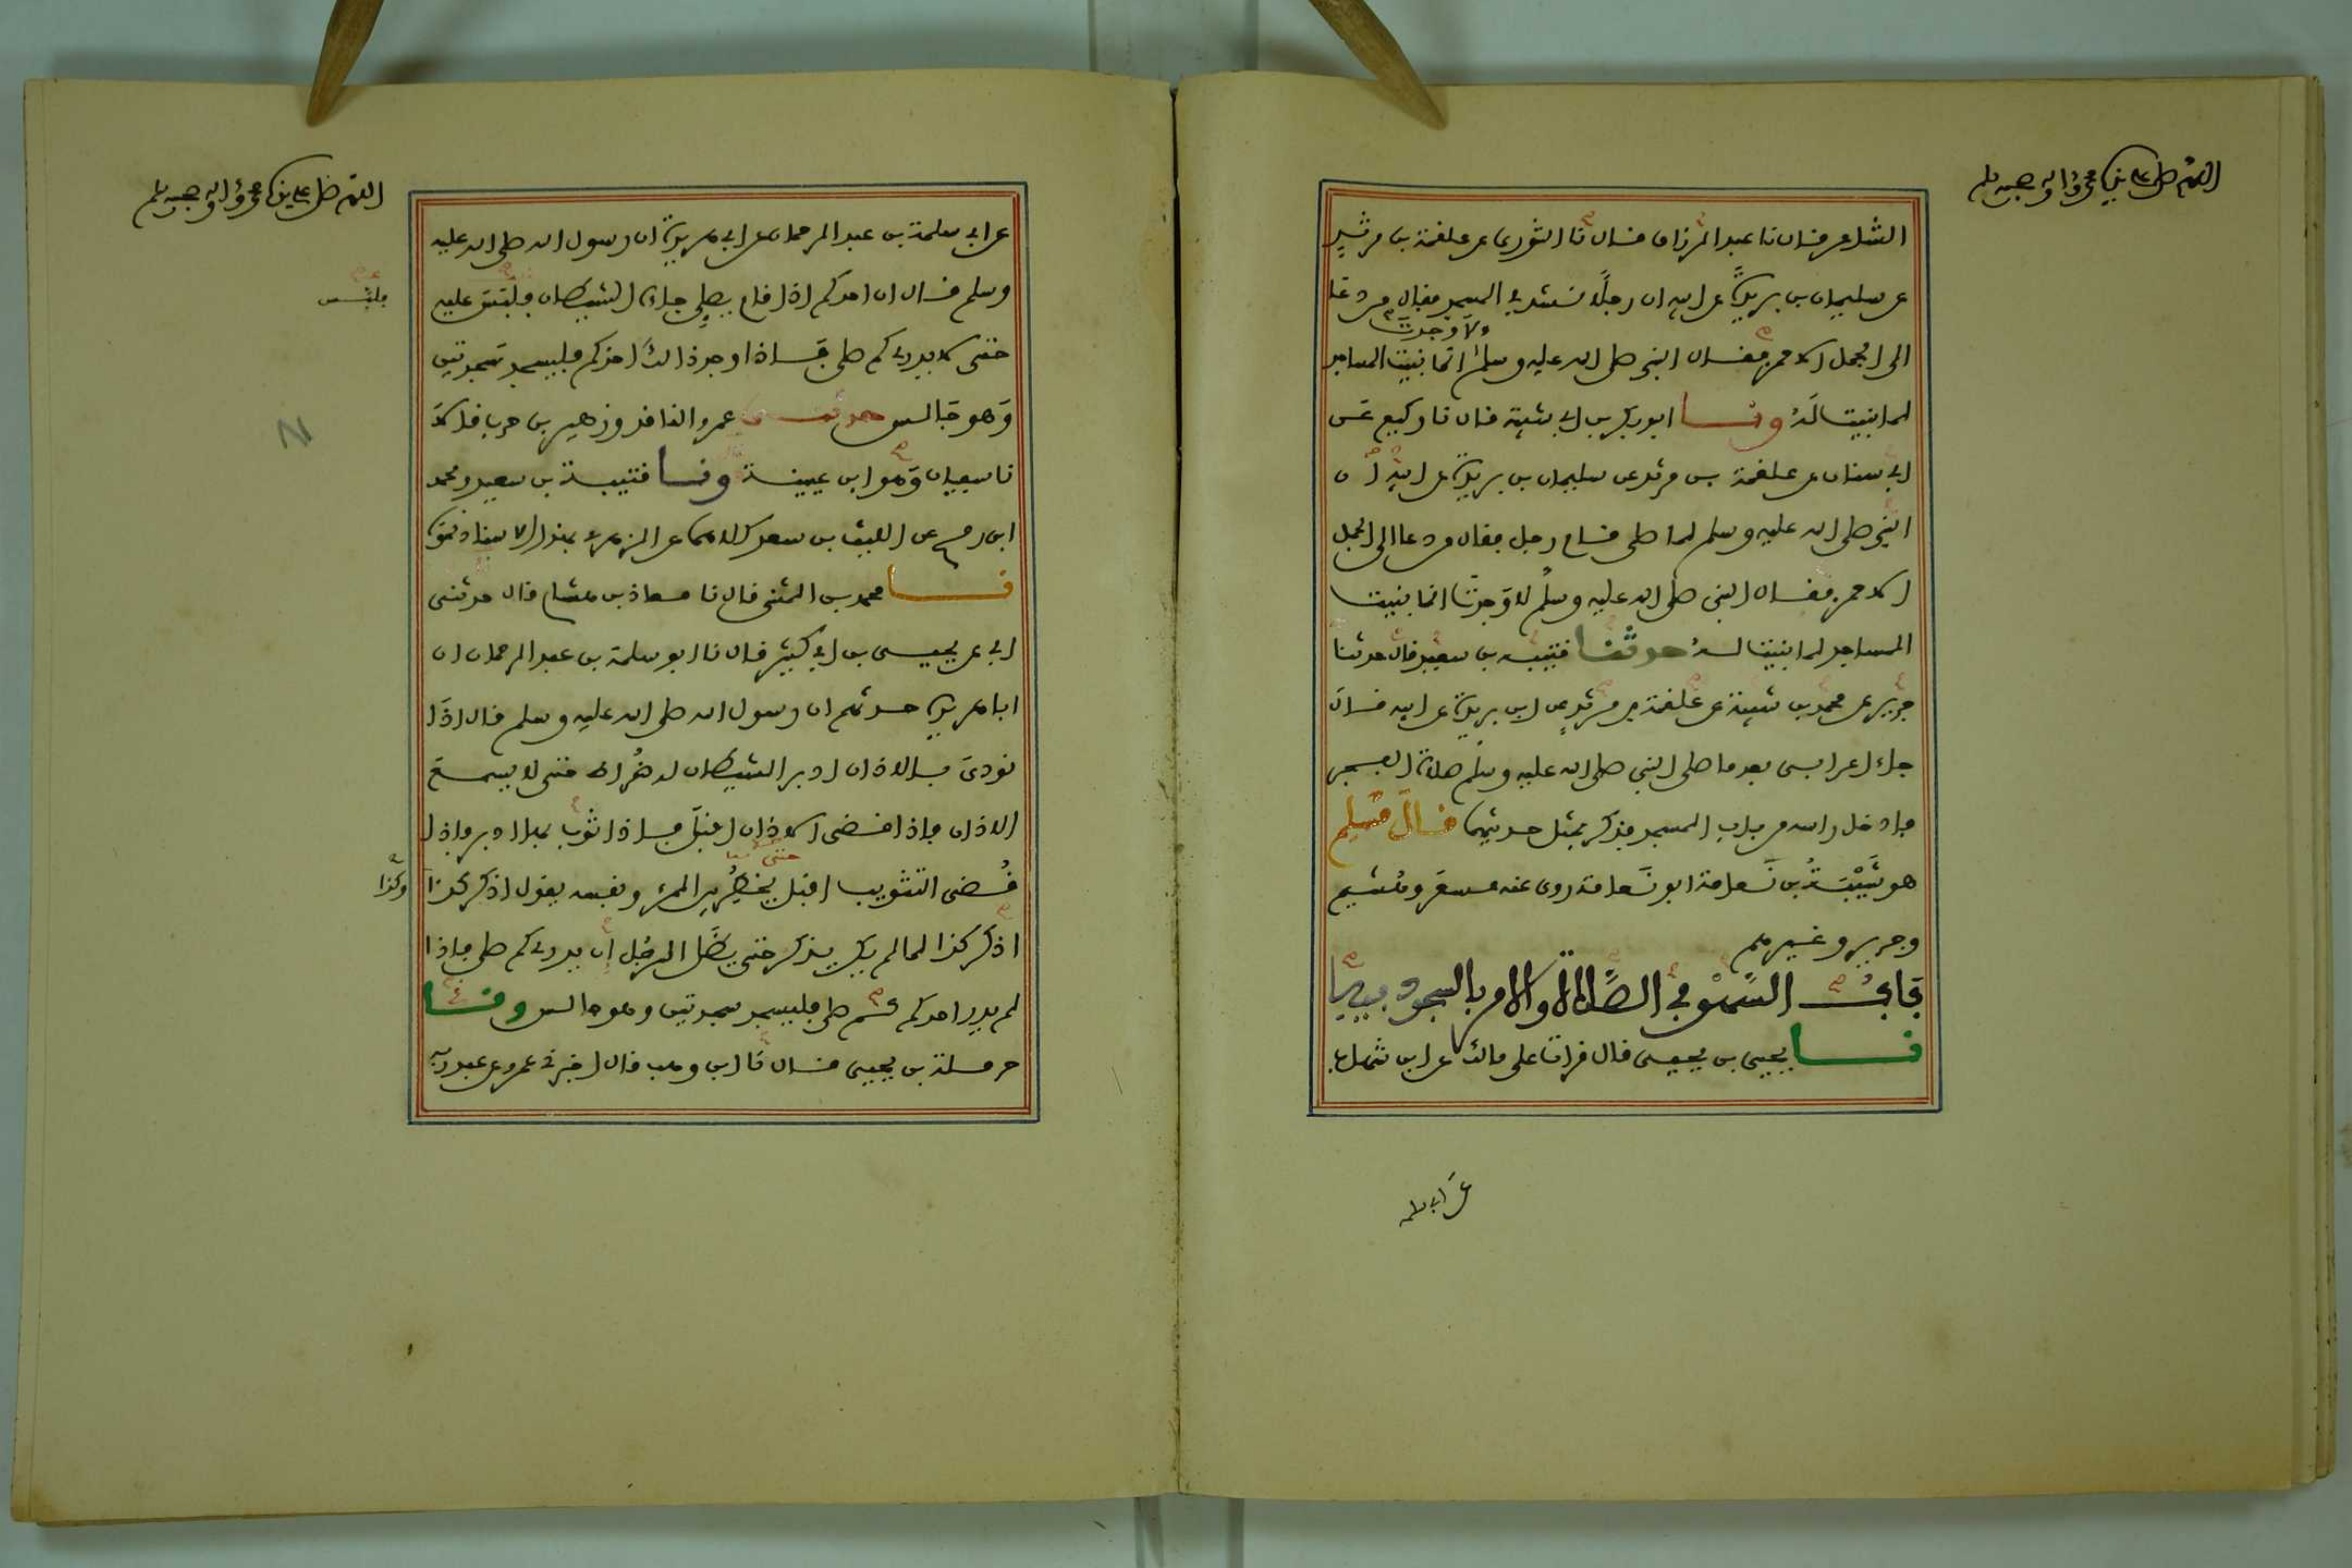 اللهم صل على نبيك محمد وءاله وصحبه وسلم
الشاعر قال نا عبد الرزاق قال نا الثوري عن علقمة بن مرثد
عن سليمان بن بريدة عن ابيه ان رجلا نشد في المسجد فقال من دعا
لا وجدت
الى الجمل الاحمر فقال النبي صلى الله عليه وسلم انما بنيت المساجد
لما بنيت له ونا ابو بكر بن ابي شيبة قال نا وكيع عن
ابي سنان عن علقمة بن مرثد عن سليمان بن بريدة عن ابيه ان
النبي صلى الله عليه وسلم لما صلى قام رجل فقال من دعا الى الجمل
الاحمر فقال النبي صلى الله عليه وسلم لا وجدت انما بنيت
المساجد لما بنيت له حدثنا قتيبة بن سعيد قال حدثنا
جرير عن محمد بن شيبة عن علقمة بن مرثد عن ابن بريدة عن ابيه قال
جاء اعرابي بعد ما صلى النبي صلى الله عليه وسلم صلاة الفجر
فادخل راسه من باب المسجد فذكر بمثل حديثهما قال مسلم
هو شيبة بن نعامة ابو نعامة روى عنه مسعر وهشيم
وجرير وغيرهم
باب السهو في الصلاة والامر بالسجود فيها
نا يحيى بن يحيى قال قرات على مالك عن ابن شهاب
عن ابي سلمة
اللهم صل على نبيك محمد وءاله وصحبه وسلم
عن ابي سلمة بن عبد الرحمان عن ابي هريرة ان رسول الله صلى الله عليه
وسلم قال ان احدكم اذا قام يصلي جاءه الشيطان فلبس عليه
فلبس
حتى لا يدري كم صلى فاذا وجد ذالك احدكم فليسجد سجدتين
وهو جالس حدثنا عمرو الناقد وزهير بن حرب قالا
نا سفيان وهو ابن عيينة ونا قتيبة بن سعيد ومحمد
ابن رمح عن الليث بن سعد كلاهما عن الزهري بهذا الاسناد نحوه
نا محمد بن المثنى قال نا معاذ بن هشام قال حدثني
ابي عن يحيى بن ابي كثير قال نا ابو سلمة بن عبد الرحمان ان
ابا هريرة حدثهم ان رسول الله صلى الله عليه وسلم قال اذا
نودي بالاذان ادبر الشيطان له ضراط حتى لا يسمع
الاذان فاذا قضي الاذان اقبل فاذا ثوب بها ادبر فاذا
قضي التثويب اقبل يخطر بين المرء ونفسه يقول اذكر كذا
حتى
وكذا
اذكر كذا لما لم يكن يذكر حتى يظل الرجل ان يدري كم صلى فاذا
لم يدر احدكم كم صلى فليسجد سجدتين وهو جالس ونا
حرملة بن يحيى قال نا ابن وهب قال اخبرني عمرو عن عبد ربه